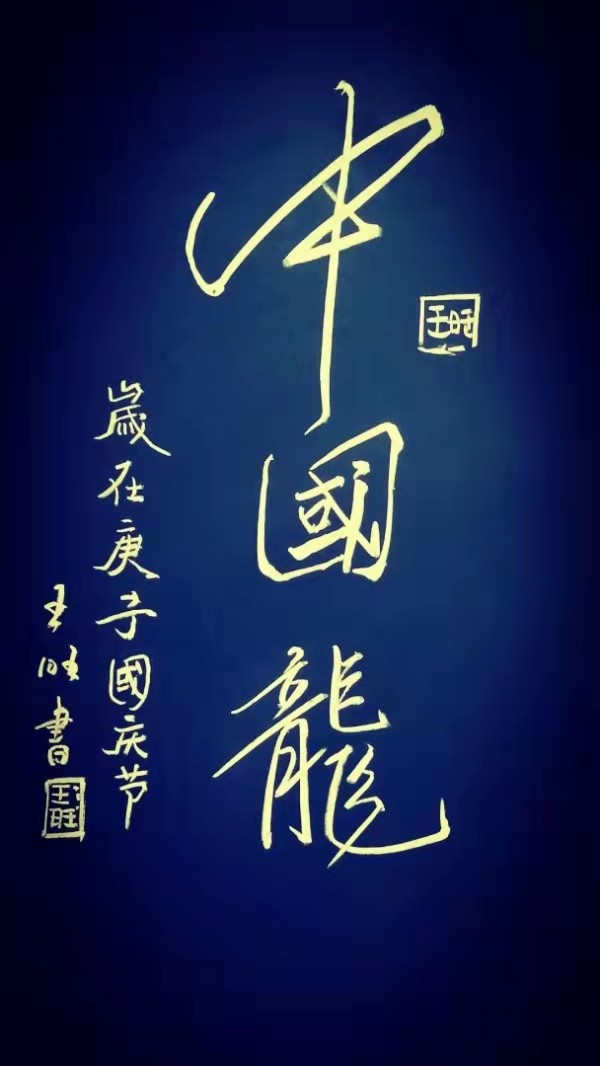 中國龍
王旺
歲在庚子國庆节
王旺書
王旺